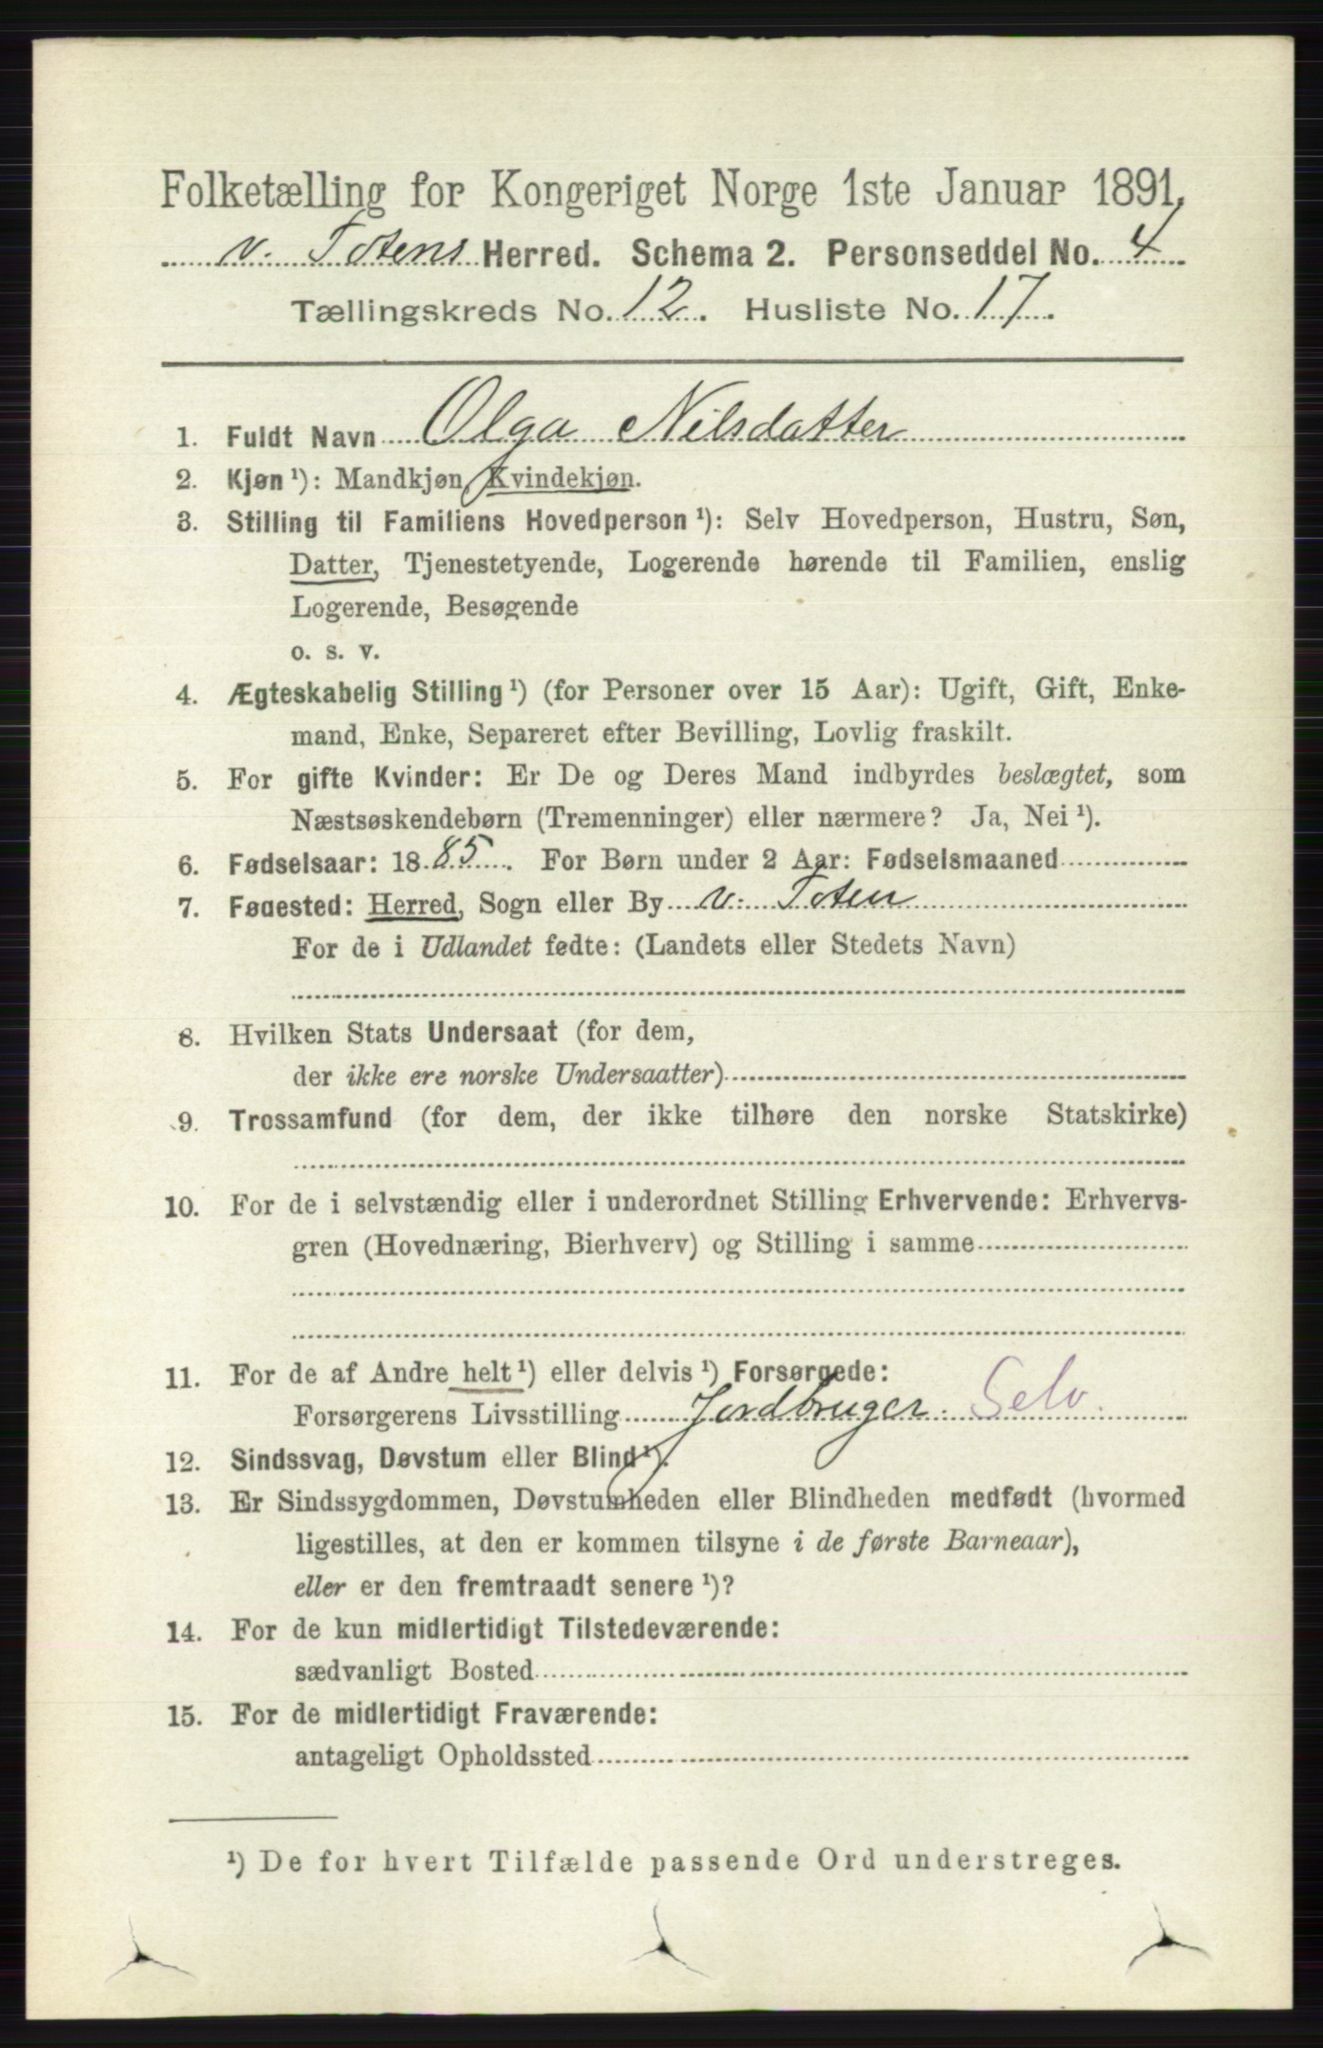 Folketælling for Kongeriget Norge 1ste Januar 1891.
v. Totens Herred. Schema 2. Personseddel No. 4
Tællingskreds No. 12. Husliste No. 17.
1. Fuldt Navn Olga Nilsdatter
2. Kjøn¹): Mandkjøn, Kvindekjøn.
3. Stilling til Familiens Hovedperson¹): Selv Hovedperson, Hustru, Søn,
Datter, Tjenestetyende, Logerende hørende til Familien, enslig
Logerende, Besøgende
o. s. v.
4. Ægteskabelig Stilling¹) (for Personer over 15 Aar): Ugift, Gift, Enke-
mand, Enke, Separeret efter Bevilling, Lovlig fraskilt.
5. For gifte Kvinder: Er De og Deres Mand indbyrdes beslægtet, som
Næstsøskendebørn (Tremenninger) eller nærmere? Ja, Nei¹).
6. Fødselsaar: 1885. For Børn under 2 Aar: Fødselsmaaned
7. Fødested: Herred, Sogn eller By v. Toten
For de i Udlandet fødte: (Landets eller Stedets Navn)
8. Hvilken Stats Undersaat (for dem,
der ikke ere norske Undersaatter)
9. Trossamfund (for dem, der ikke tilhøre den norske Statskirke)
10. For de i selvstændig eller i underordnet Stilling Erhvervende: Erhvervs-
gren (Hovednæring, Bierhverv) og Stilling i samme
11. For de af Andre helt¹) eller delvis¹) Forsørgede:
Forsørgerens Livsstilling Jordbruger. Selv.
12. Sindssvag, Døvstum eller Blind¹).
13. Er Sindssygdommen, Døvstumheden eller Blindheden medfødt (hvormed
ligestilles, at den er kommen tilsyne i de første Barneaar),
eller er den fremtraadt senere¹)?
14. For de kun midlertidigt Tilstedeværende:
sædvanligt Bosted
15. For de midlertidigt Fraværende:
antageligt Opholdssted
¹) De for hvert Tilfælde passende Ord understreges.